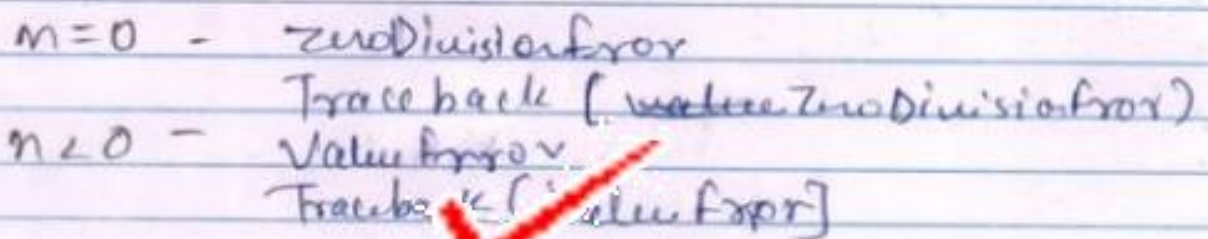 m=0 - ZeroDivisionError
Traceback [ ZeroDivisionError)
n<0 - Value Error
Traceback [ValueError]